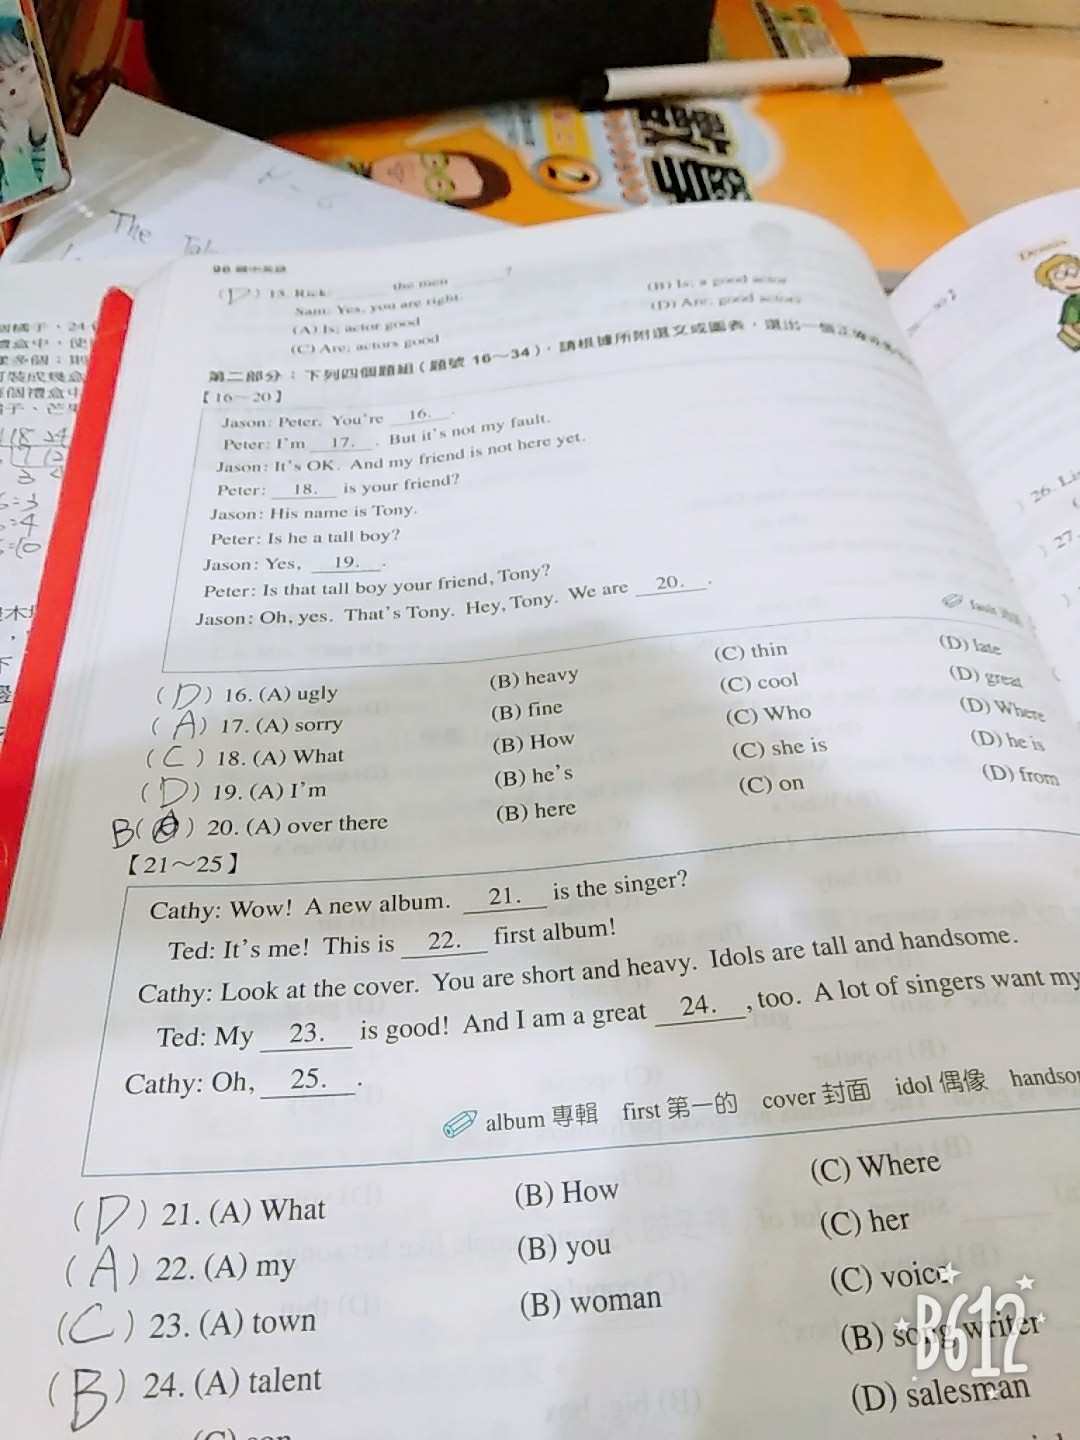 The Tal
國中英語
( D ) 15. Rick: ______ the men ______?
Sam: Yes, you are right.
(A) Is; actor good (B) Is; a good actor
(C) Are; actors good (D) Are; good actors
第二部分：下列四個題組（題號 16～34），請根據所附選文或圖表，選出一個
【16～20】
Jason: Peter. You're 16. .
Peter: I'm 17. . But it's not my fault.
Jason: It's OK. And my friend is not here yet.
Peter: 18. is your friend?
Jason: His name is Tony.
Peter: Is he a tall boy?
Jason: Yes, 19. .
Peter: Is that tall boy your friend, Tony?
Jason: Oh, yes. That's Tony. Hey, Tony. We are 20. .
fault
( D ) 16. (A) ugly (B) heavy (C) thin (D) late
( A ) 17. (A) sorry (B) fine (C) cool (D) great
( C ) 18. (A) What (B) How (C) Who (D) Where
( D ) 19. (A) I'm (B) he's (C) she is (D) he is
B ( ) 20. (A) over there (B) here (C) on (D) from
【21～25】
Cathy: Wow! A new album. 21. is the singer?
Ted: It's me! This is 22. first album!
Cathy: Look at the cover. You are short and heavy. Idols are tall and handsome.
Ted: My 23. is good! And I am a great 24. , too. A lot of singers want my
Cathy: Oh, 25. .
album 專輯 first 第一的 cover 封面 idol 偶像 handso
( D ) 21. (A) What (B) How (C) Where
( A ) 22. (A) my (B) you (C) her
( C ) 23. (A) town (B) woman (C) voice
( B ) 24. (A) talent (B) song writer
(C) son (D) salesman
Dennis
) 26. Li
) 27.
B612